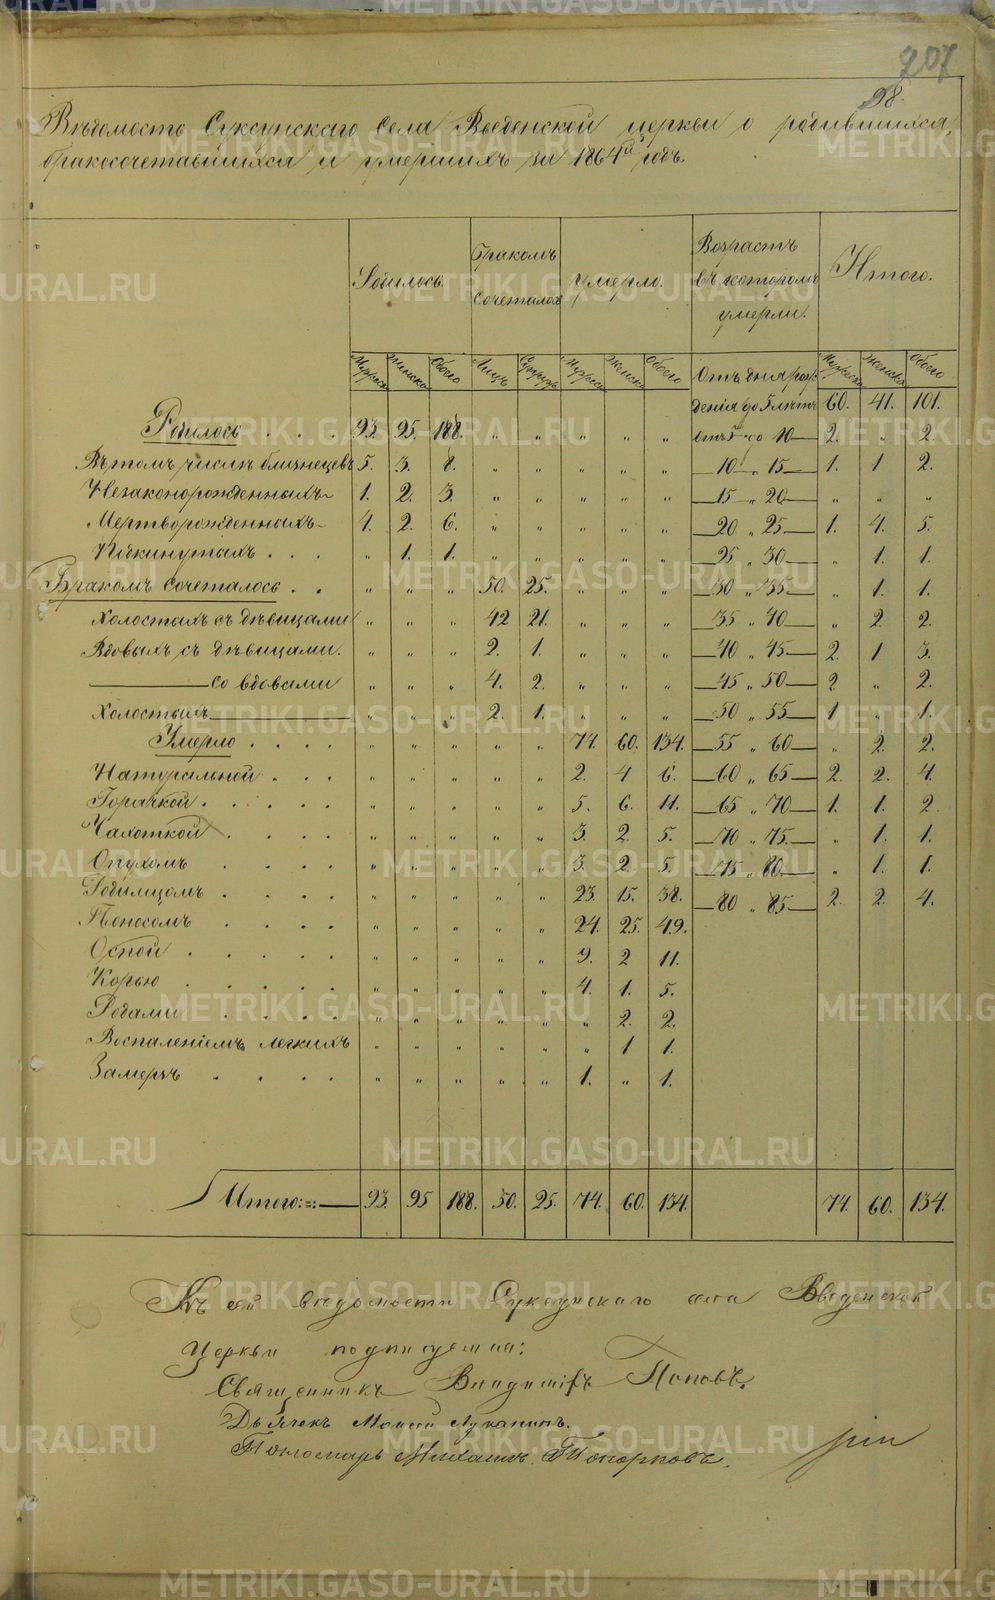 707
98.
Вѣдомость Суксунскаго села Введенской церкви о родившихся,
бракосочетавшихся и умершихъ за 1864й годъ.
Родилось. Бракомъ сочеталось умерло. Возрастъ въ которомъ умерли. Итого.
Мужеска Женска Обоего Лицъ Супруж. Мужеска Женска Обоего Отъ дня рож- Мужеска Женска Обоего
денія до 5 лѣтъ 60. 41. 101.
Родилось . . . 93. 95. 188. „ „ „ „ „ отъ 5 до 10 — 2. „ 2.
Въ томъ числѣ близнецевъ 5. 3. 8. „ „ „ „ „ — 10 „ 15 — 1. 1 2.
Незаконорожденныхъ 1. 2. 3. „ „ „ „ „ — 15 „ 20 — „ „ „
Мертворожденныхъ 4. 2. 6. „ „ „ „ „ — 20 „ 25 — 1. 4. 5.
Подкинутыхъ . . . „ 1. 1. „ „ „ „ „ — 25 „ 30 — „ 1. 1.
Бракомъ сочеталось . . „ „ „ 50. 25. „ „ „ — 30 „ 35 — „ 1. 1.
Холостыхъ съ дѣвицами „ „ „ 42 21. „ „ „ — 35 „ 40 — „ 2 2.
Вдовыхъ съ дѣвицами. „ „ „ 2. 1. „ „ „ — 40 „ 45 — 2. 1 3.
——— со вдовами „ „ „ 4. 2. „ „ „ — 45 „ 50 — 2 „ 2.
Холостыхъ ——— „ „ „ 2. 1. „ „ „ — 50 „ 55 — 1 „ 1.
Умерло . . . . „ „ „ „ „ 74. 60. 134. — 55 „ 60 — „ 2. 2.
Натуральной . . . „ „ „ „ „ 2. 4 6. — 60 „ 65 — 2. 2. 4.
Горячкой . . . . . „ „ „ „ „ 5. 6. 11. — 65 „ 70 — 1. 1. 2
Чахоткой . . . . „ „ „ „ „ 3. 2. 5. — 70 „ 75. — „ 1. 1.
Опухомъ . . . . „ „ „ „ „ 3. 2 5. — 75 „ 80 — „ 1. 1.
Родимцомъ . . . . „ „ „ „ „ 23. 15. 38. — 80 „ 85 — 2. 2. 4.
Поносомъ . . . . „ „ „ „ „ 24. 25. 49.
Оспой . . . . . „ „ „ „ „ 9. 2 11.
Корью . . . . . „ „ „ „ „ 4. 1. 5.
Родами . . . . „ „ „ „ „ „ 2. 2.
Воспаленіемъ легкихъ „ „ „ „ „ „ 1 1.
Замерзъ . . . . „ „ „ „ „ 1. „ 1.
Итого:=: — 93. 95 188. 50. 25. 74. 60. 134. 74. 60. 134.
Къ сей вѣдомости Суксунскаго села Введенской
Церкви подписуемся:
Священникъ Владиміръ Поповъ.
Дьячекъ Моисей Луканинъ.
Пономарь Михаилъ Топорковъ.
METRIKI.GASO-URAL.RU